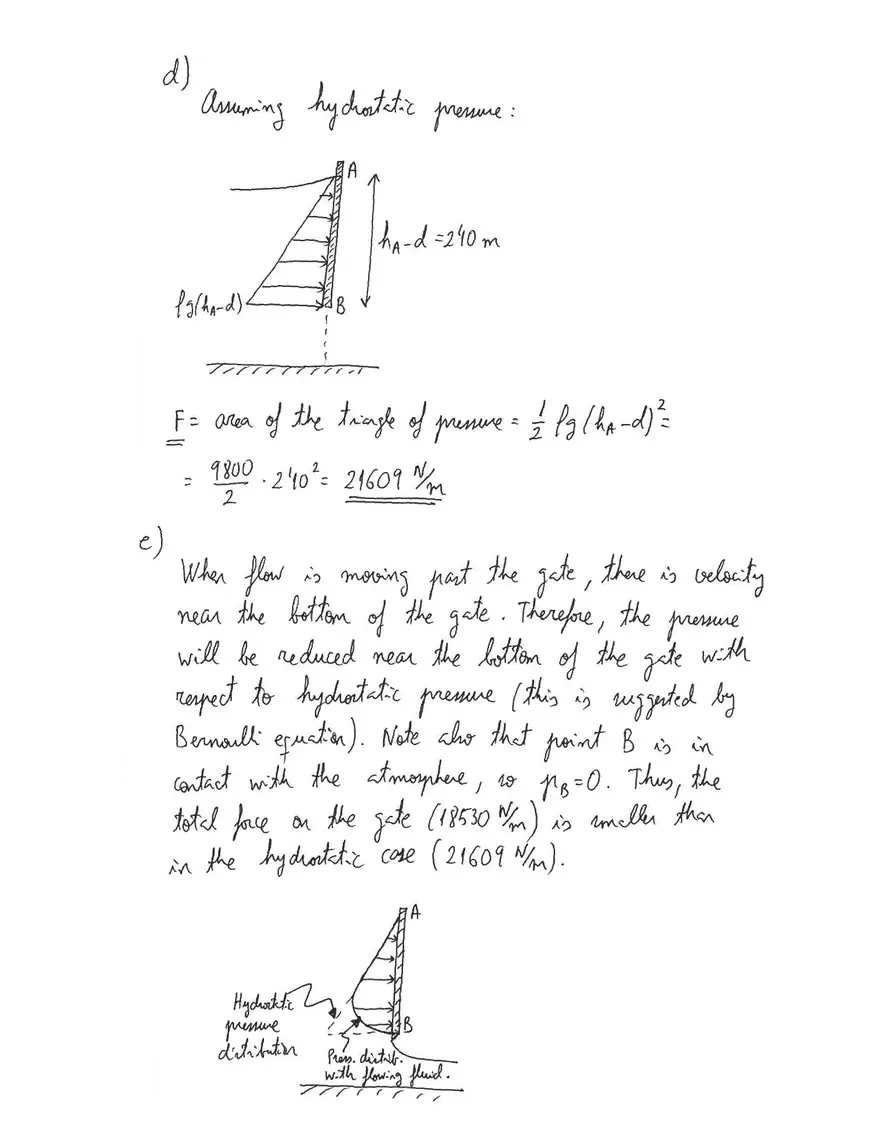 d)
Assuming hydrostatic pressure:
A
hA-d = 2'10 m
ρg(hA-d)
B
F = area of the triangle of pressure = 1/2 ρg(hA-d)² =
= 9800/2 · 2'10² = 21609 N/m
e)
When flow is moving past the gate, there is velocity
near the bottom of the gate. Therefore, the pressure
will be reduced near the bottom of the gate with
respect to hydrostatic pressure (this is suggested by
Bernoulli equation). Note also that point B is in
contact with the atmosphere, so pB=0. Thus, the
total force on the gate (18530 N/m) is smaller than
in the hydrostatic case (21609 N/m).
A
Hydrostatic
pressure
distribution
B
Press. distrib.
with flowing fluid.